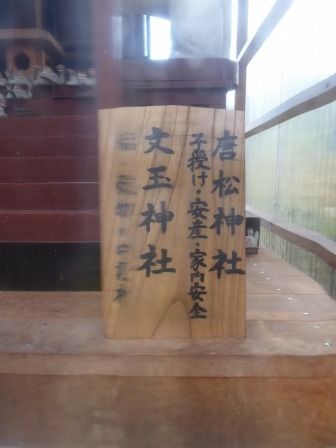 唐松神社
子授け・安産・家内安全
文玉神社